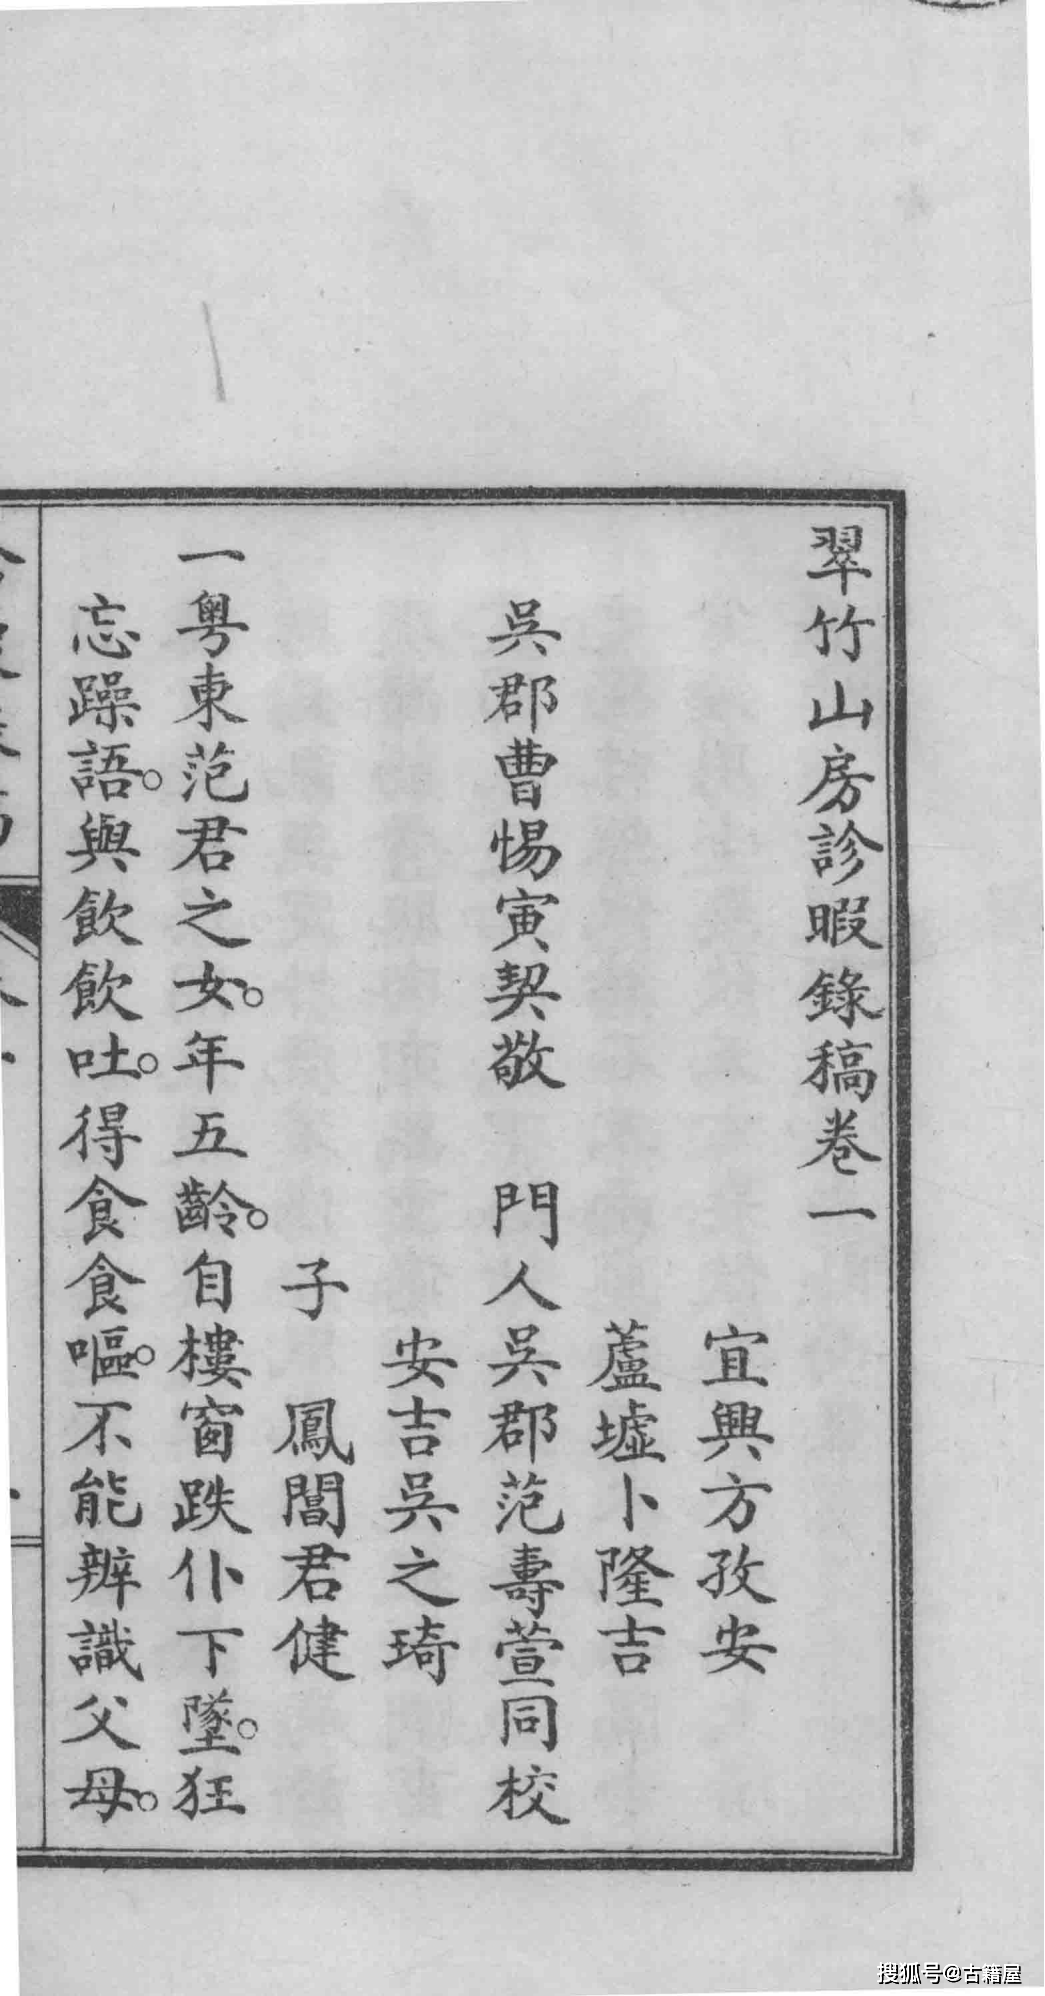 翠竹山房診暇錄稿卷一
宜興方孜安
蘆墟卜隆吉
吳郡曹惕寅契敬　門人吳郡范壽萱同校
安吉吳之琦
子　鳳閶君健
一粵東范君之女。年五齡。自樓窗跌仆下墜。狂
忘躁語。與飲飲吐。得食食嘔。不能辨識父母。
搜狐号@古籍屋